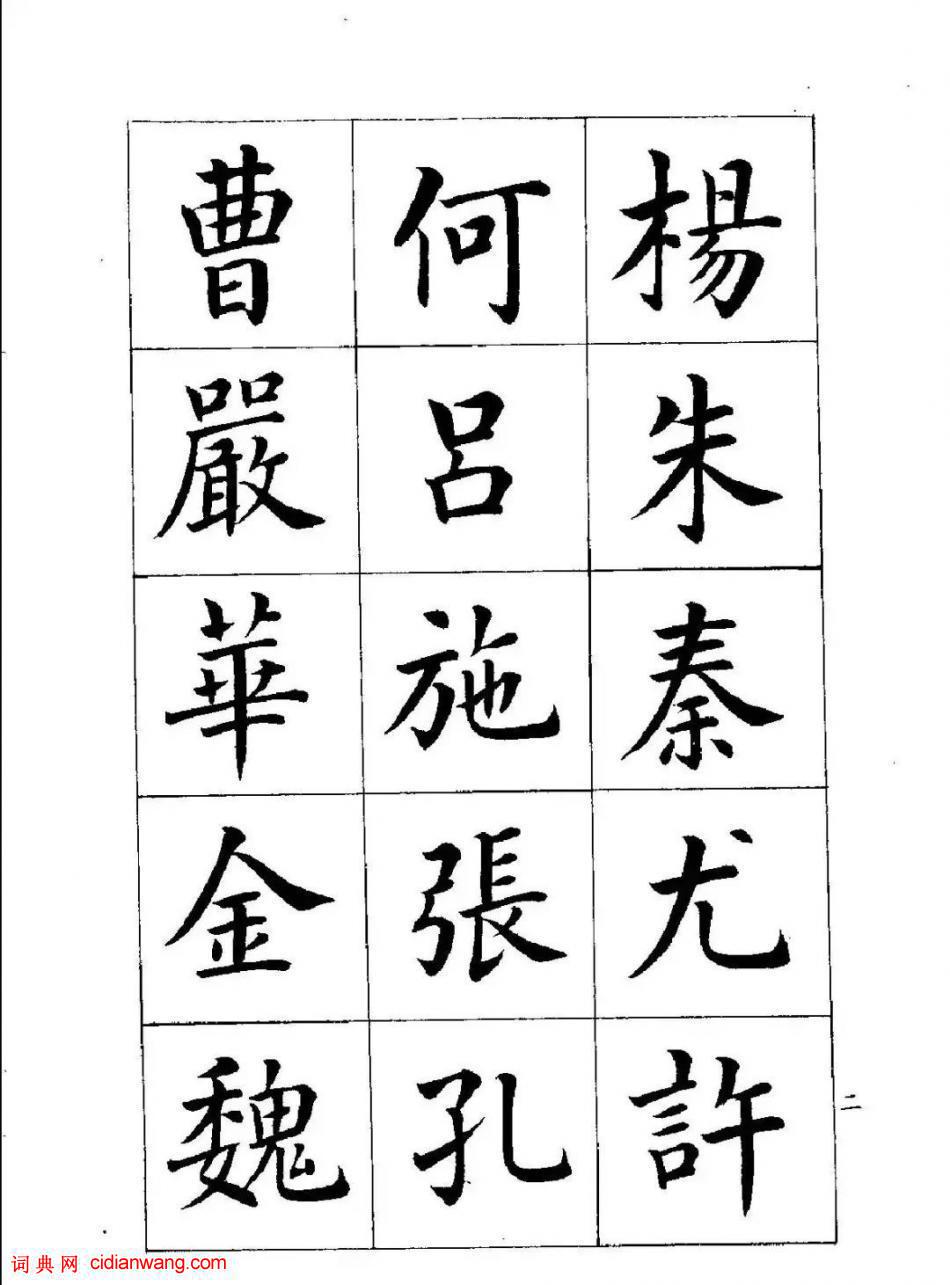 楊朱秦尤許
何呂施張孔
曹嚴華金魏
二
词典网 cidianwang.com